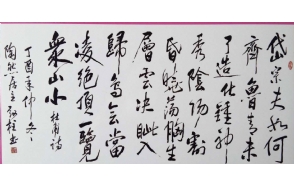 岱宗夫如何
齊魯青未
了造化鍾神
秀陰陽割
昏曉蕩胸生
層雲決眦入
歸鳥會當
凌絕頂一覽
衆山小 杜甫詩
丁酉年仲冬
陶然居主